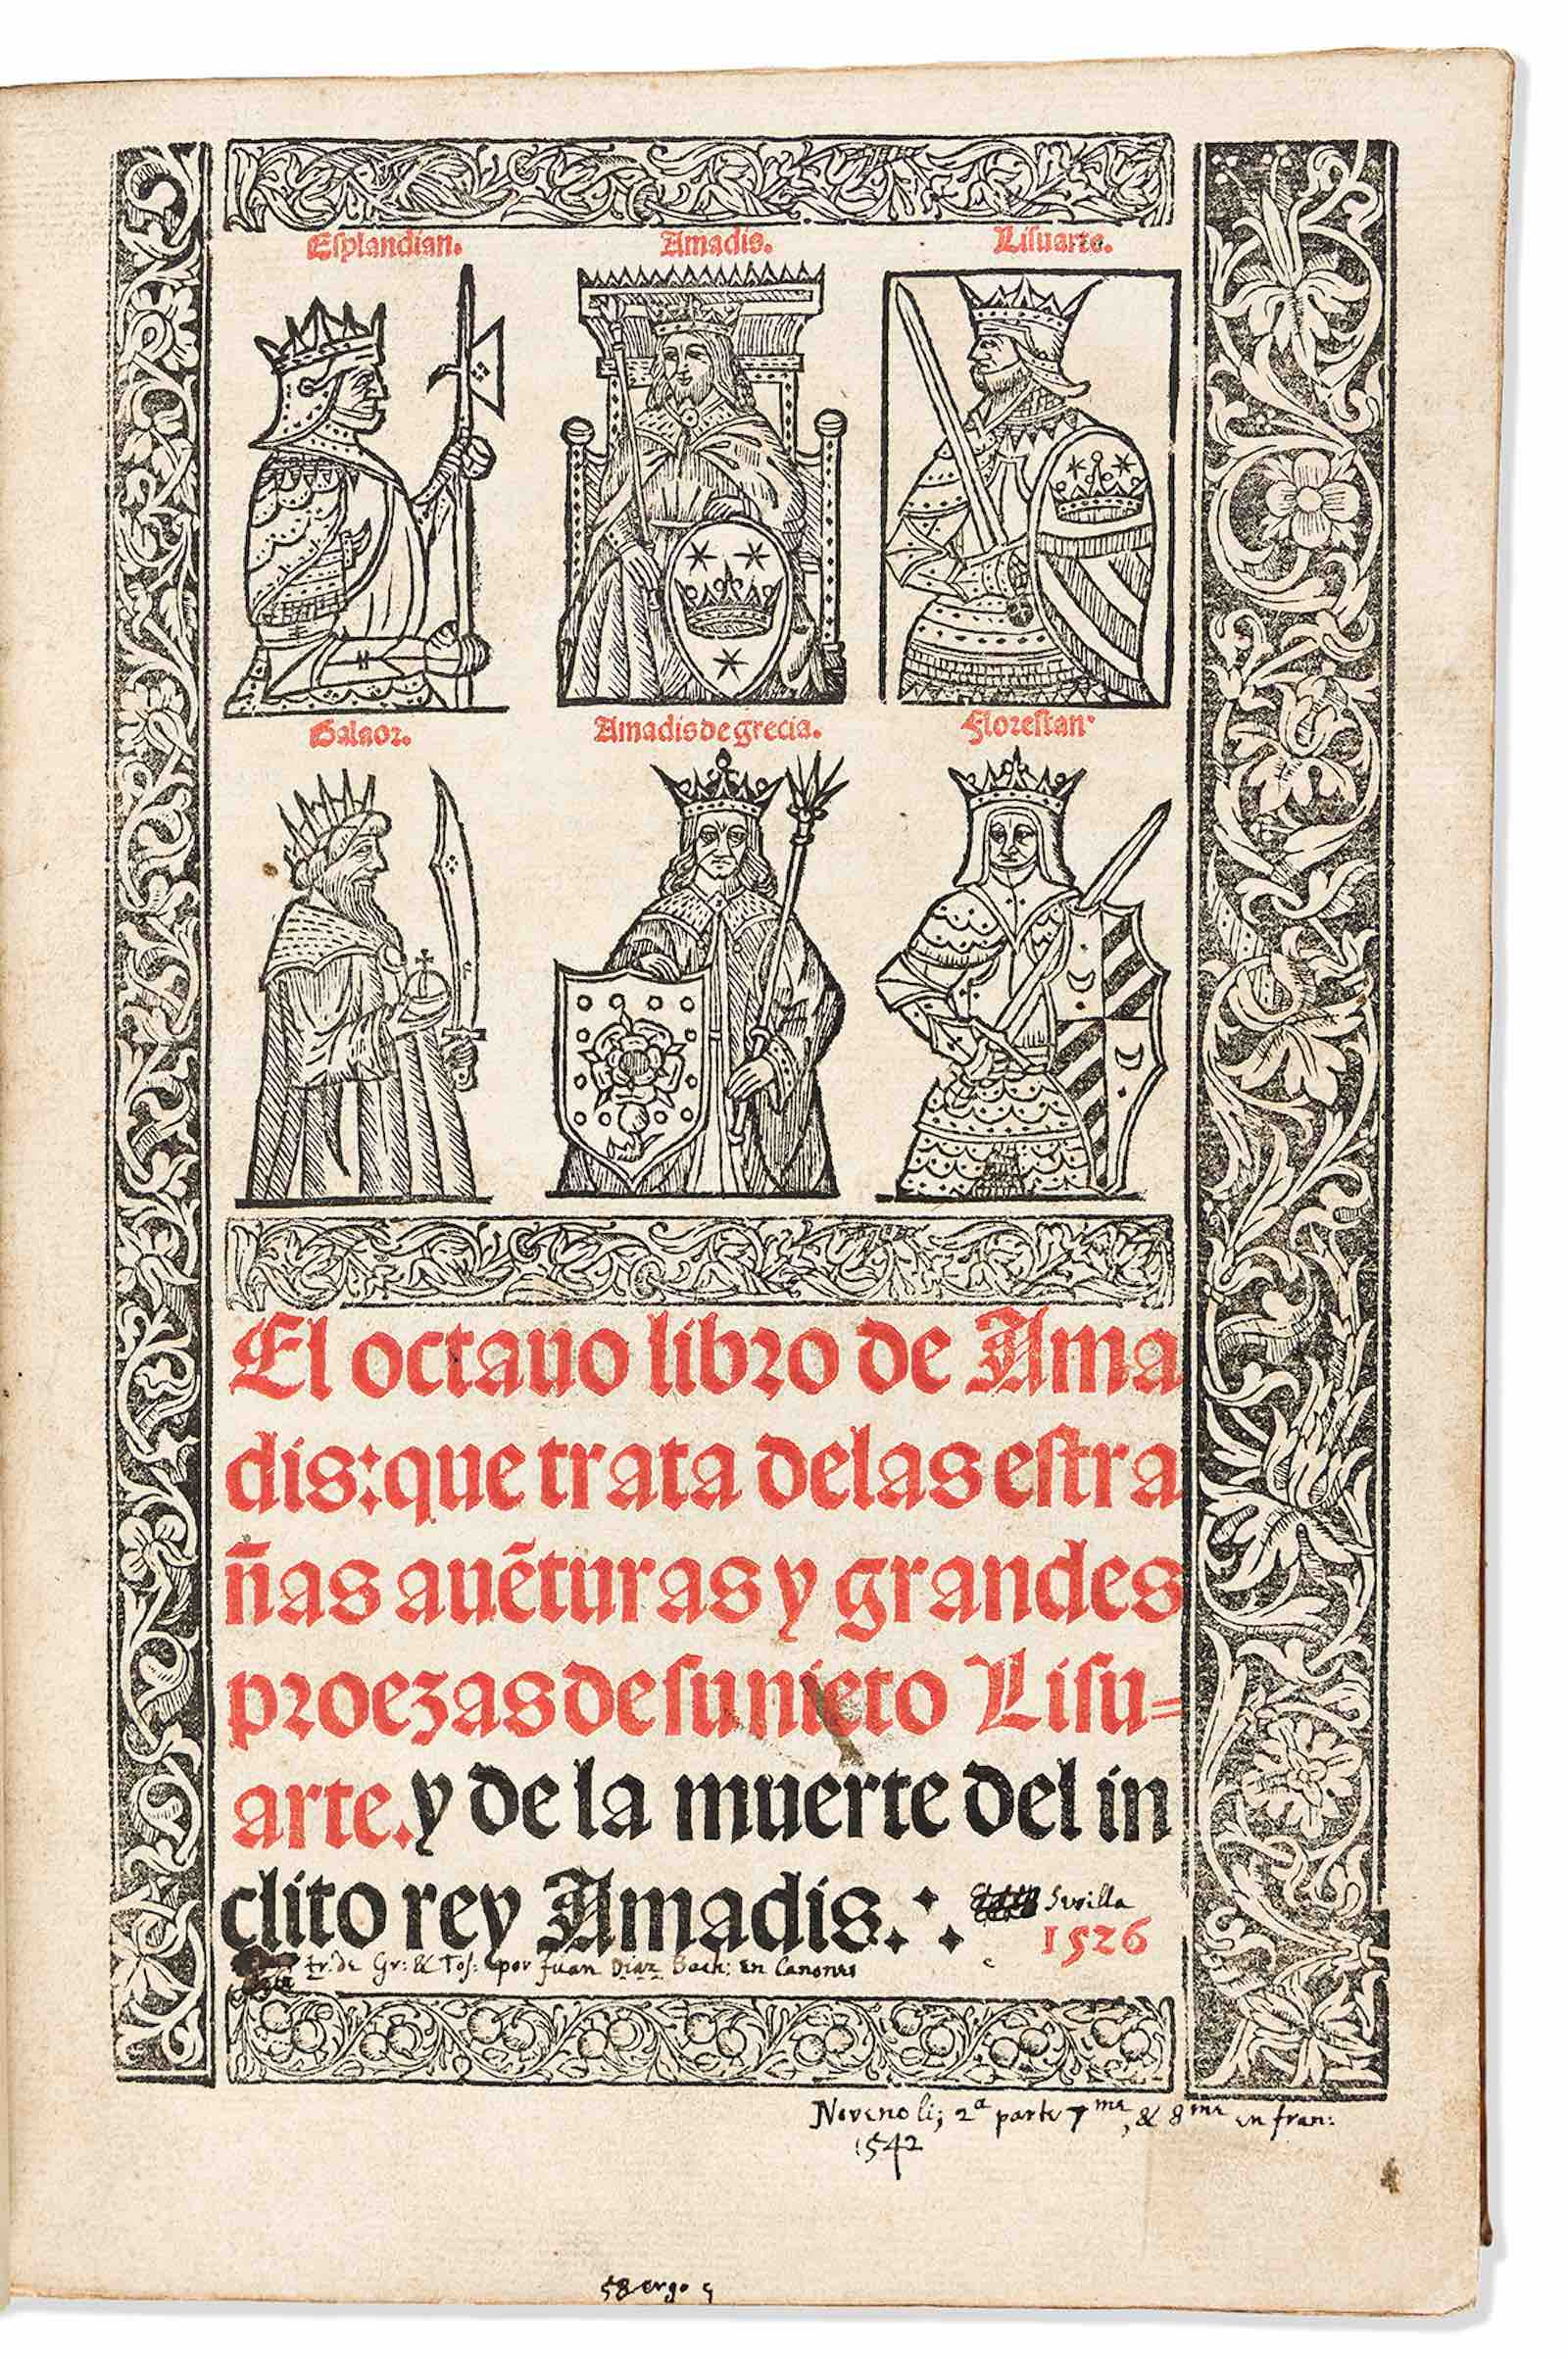 Esplandian. Amadis. Lisuarte.
Galaor. Amadis de grecia. Florestan.
El octauo libro de Ama
dis: que trata delas estra
ñas auẽturas y grandes
proezas de su nieto Lisu=
arte. y de la muerte del in
clito rey Amadis.
Sevilla
1526
tr: de Gr: & Tos: por Juan Diaz Bach: en Canones
Noveno li; 2ª parte 7me, & 8me en fran:
1542